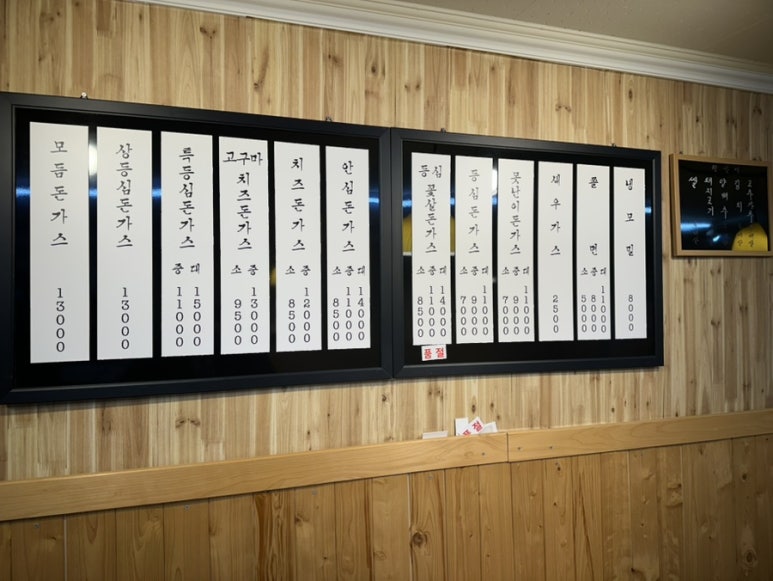 모듬돈가스
13000
상등심돈가스
13000
특등심돈가스
중 대
11000 15000
고구마
치즈돈가스
소 중
9500 13000
치즈돈가스
소 중
8500 12000
안심돈가스
소 중 대
8500 11000 14000
등심
꽃살돈가스
소 중 대
8500 11000 14000
품절
등심돈가스
소 중 대
7000 9000 11000
못난이돈가스
소 중 대
7000 9000 11000
새우가스
2500
쫄면
소 중 대
5000 8000 11000
냉모밀
8000
쌀
돼지고기
양배추
김치
품절